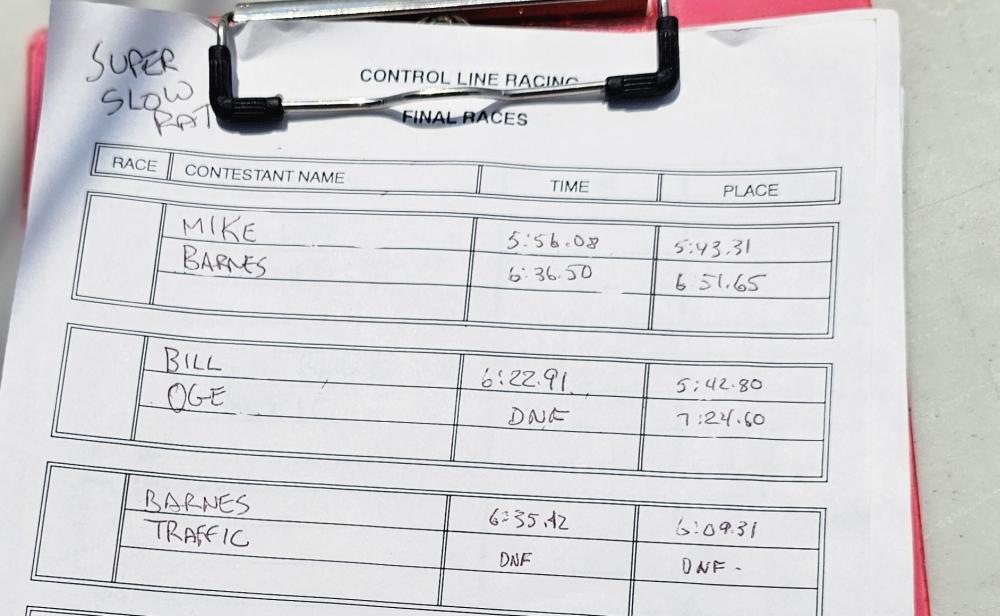 SUPER
SLOW
RAT
CONTROL LINE RACING
FINAL RACES
RACE CONTESTANT NAME TIME PLACE
MIKE 5:56.08 5:43.31
BARNES 6:36.50 6:51.65
BILL 6:22.91 5:42.80
OGE DNF 7:24.60
BARNES 6:35.42 6:09.31
TRAFFIC DNF DNF -